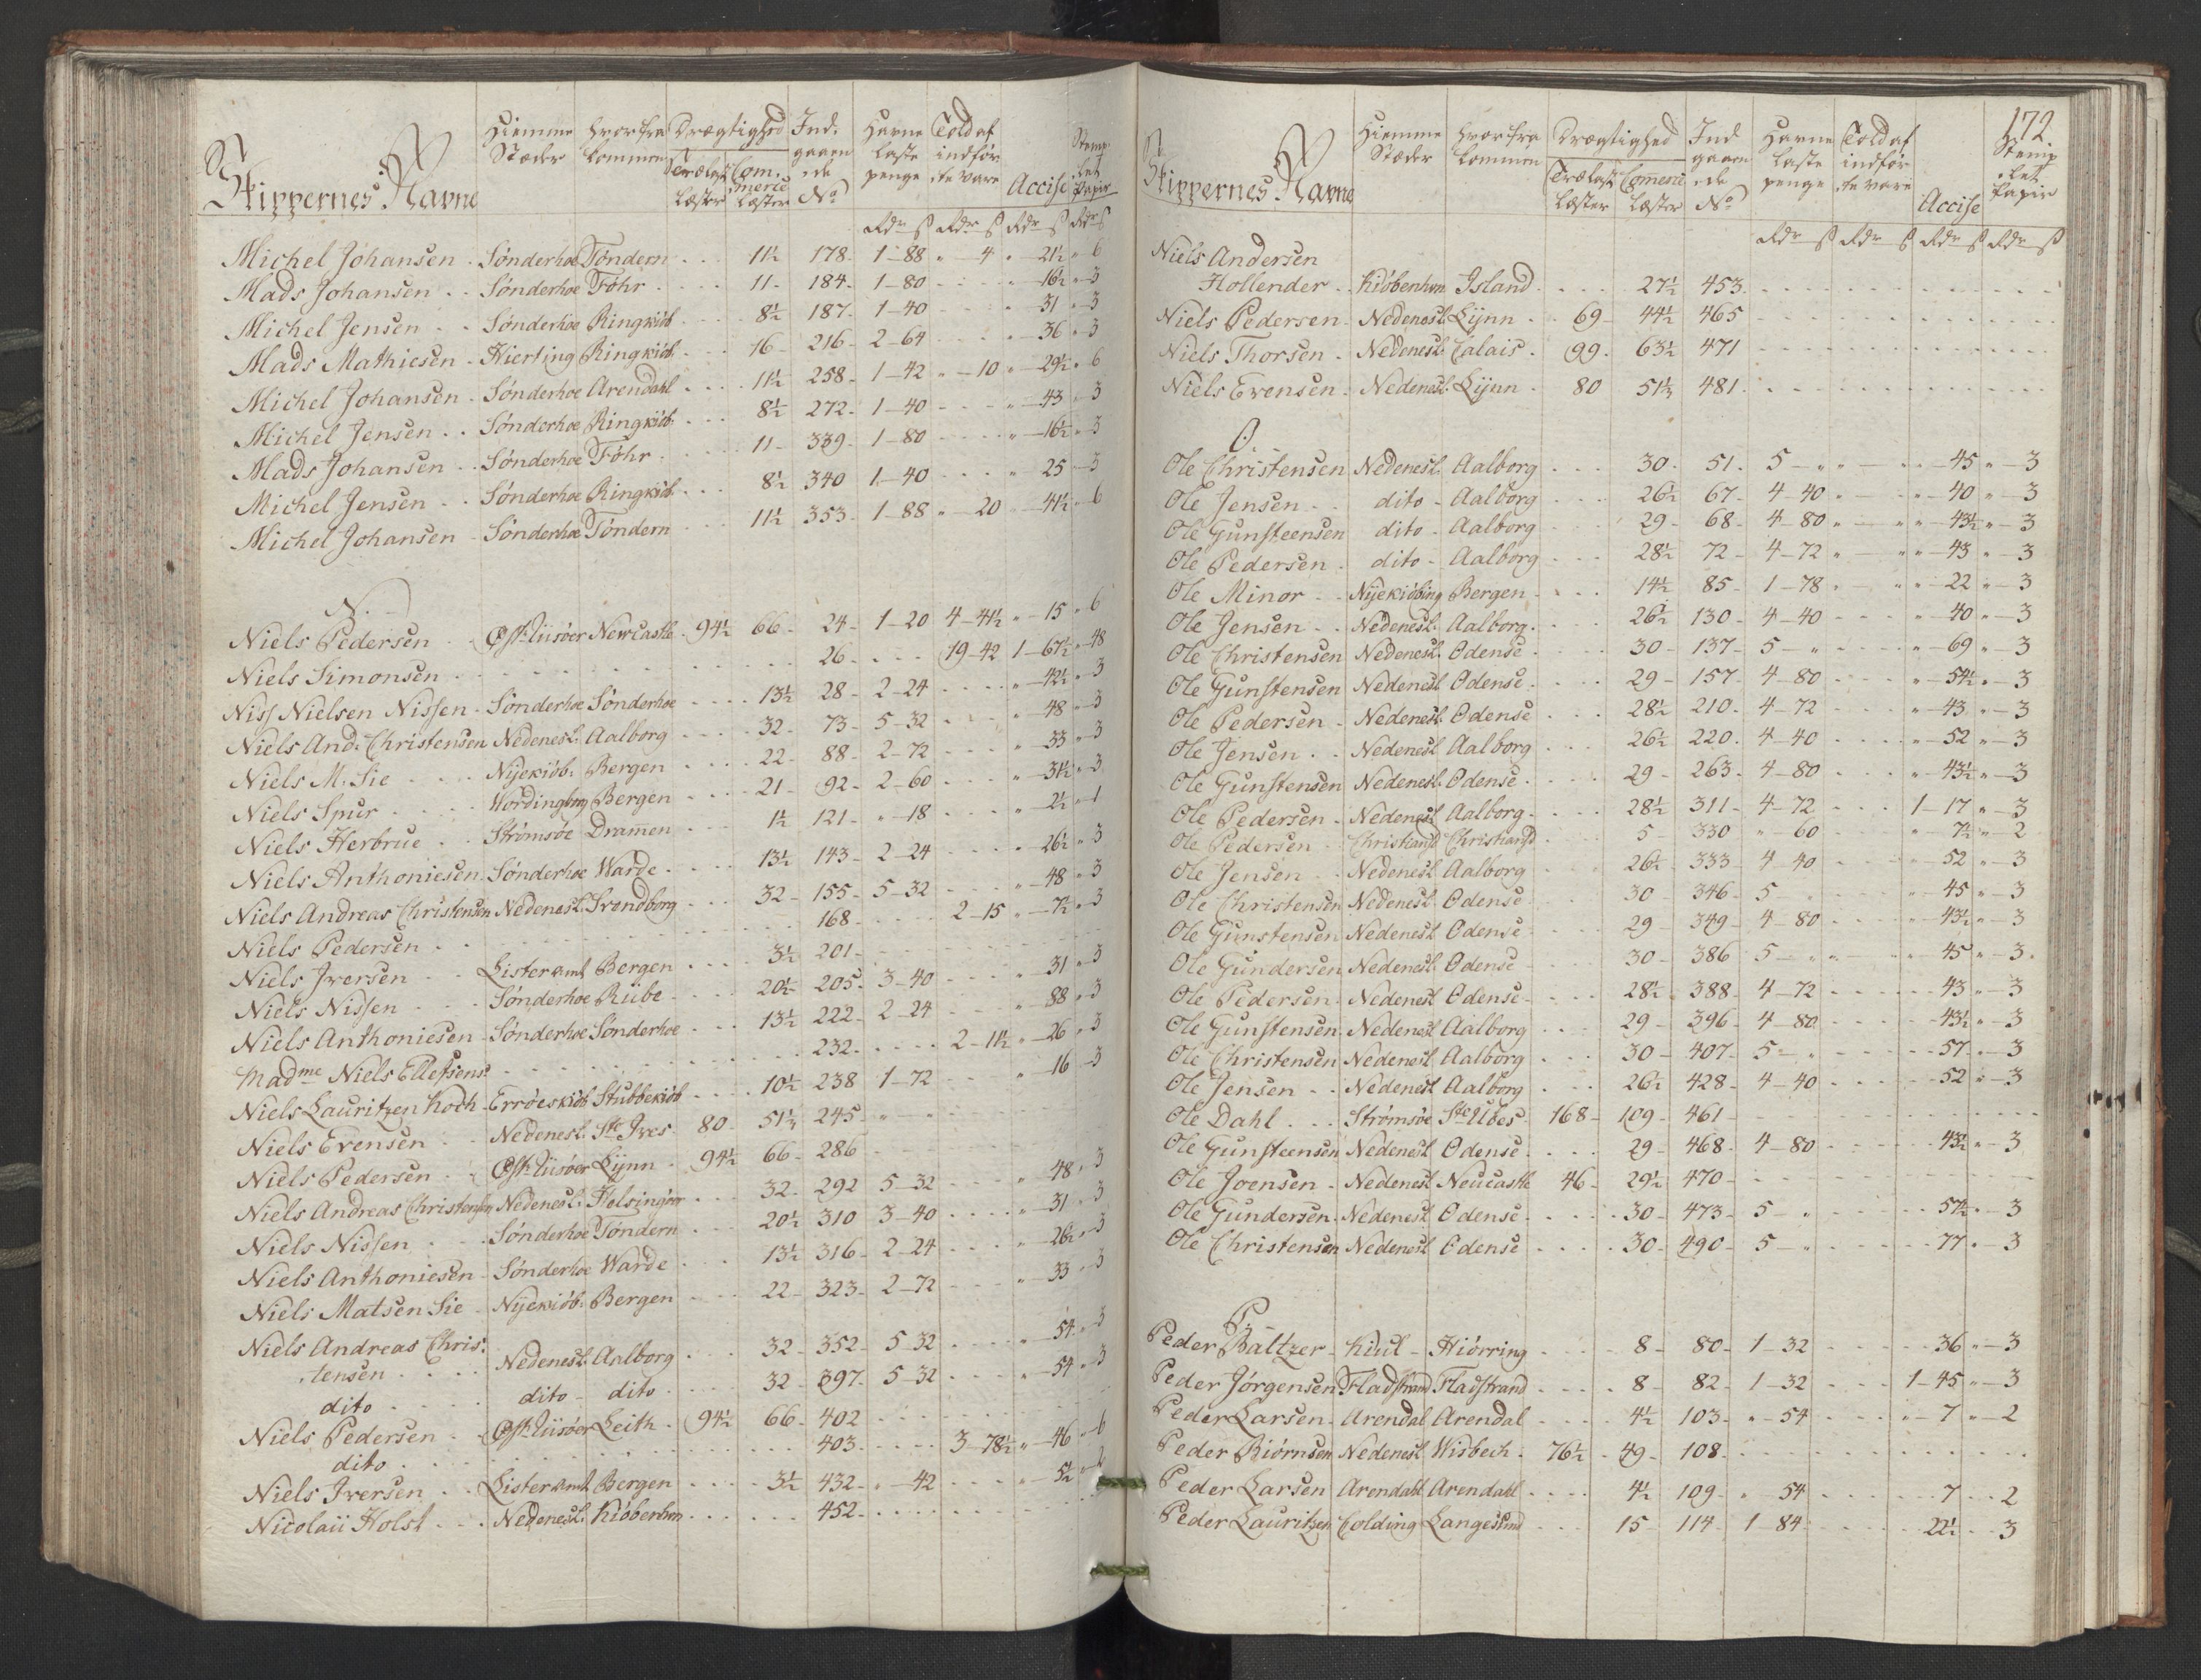 Skippernes Navne | Hiemme Stæder | hvorfra kommen | Drægtighed Trælast Læster | Commerce Læster | Ind gaaende No | Havne laste penge | Told af indførte vare | Accise | Stemplet Papir
Rdr ß Rdr ß Rdr ß Rdr ß
Michel Johansen - Sønderhoe Tøndern - 11½ 178 - 1-88 " - 4 " - 21½ " 6
Mads Johansen - Sønderhoe Føhr - 11 - 184 - 1-80 - 16½ " 3
Michel Jensen - Sønderhoe Ringkiøb - 8½ 187 - 1-40 - 31 " 3
Mads Mathiesen - Hierting Ringkiøb - 16 - 216 - 2-64 - 36 " 3
Michel Johansen - Sønderhoe Arendahl - 11½ 258 - 1-42 " - 10 " - 29½ " 6
Michel Jensen - Sønderhoe Ringkiøb - 8½ 272 - 1-40 - " - 43 " 3
Mads Johansen - Sønderhoe Føhr - 11 - 339 - 1-80 - " - 16½ " 3
Michel Jensen - Sønderhoe Ringkiøb - 8½ 340 1-40 - " 25 - 3
Michel Johansen - Sønderhoe Tøndern - 11½ 353 - 1-88 " - 20 " - 41½ " 6
N.
Niels Pedersen - Øst-Riisøer Newcastle - 94½ 66 - 24 - 1-20 4-41½ " - 15 " 6
Niels Simonsen - 26 - 19-42 1-67½ " 48
Niss Nielsen Nissen - Sønderhoe Sønderhoe - 13½ 28 - 2-24 - " - 42½ " 3
Niels And: Christensen Nedenesl: Aalborg - 32 - 73 - 5-32 - " - 48 " 3
Niels M: Sie - Nijekiøb: Bergen - 22 - 88 - 2-72 - " - 33 " 3
Niels Spur - Wordingbrg Bergen - 21 - 92 - 2-60 - " - 31½ " 3
Niels Herbrue - Strømsøe Dramen - 1½ 121 - " - 18 - " - 2½ " 1
Niels Anthoniesen - Sønderhoe Warde - 13½ 143 - 2-24 - " - 26½ " 3
Niels Andreas Christensen Nedenesl: Svendborg - 32 - 155 - 5-32 - " - 48 " 3
Niels Pedersen - 168 - 2-15 " - 7½ " 3
Niels Iversen - Lister amt Bergen - 3½ 201 -
Niels Nissen - Sønderhoe Riibe - 20½ 205 - 3-40 - " 31 " 3
Niels Anthoniesen - Sønderhoe Sønderhoe - 13½ 222 - 2-24 - " 88 " 3
Madme Niels Ellefsens - 232 - 2-11½ " - 26 " 3
Niels Lauritzen Koch - Errøeskiøb Stubbekiøb - 10½ 238 1-72 - " - 16 - 3
Niels Evensen - Nedenesl: Ste Ives - 80 - 51½ 245 - " - "
Niels Pedersen - Øst-Riisøer Lynn - 94½ 66 - 286 -
Niels Andreas Christensen Nedenesl: Helsingøer - 32 - 292 5-32 - " - 48 " 3
Niels Nissen - Sønderhoe Tøndern - 20½ 310 3-40 - " - 31 " 3
Niels Anthoniesen - Sønderhoe Warde - 13½ 316 - 2-24 - " - 26½ " 3
Niels Matsen Sie - Nijekiøb: Bergen - 22 - 323 - 2-72 - " - 33 " 3
Niels Andreas Chris:
tensen - Nedenesl: Aalborg - 32 - 352 - 5-32 - " - 54 " 3
dito - dito - dito - 32 - 397 - 5-32 - " - 54 " 3
Niels Pedersen - Øst-Riisøer Leith - 94½ 66 - 402 -
dito - 403 - 3-78½ " - 46 " 6
Niels Iversen - Lister amt Bergen - 3½ 432 - " - 42 - " - 5½ " 2
Nicolaii Holst - Nedenesl: Kiøbenhvn - 452 -
172.
Skippernes Navne | Hiemme Stæder | hvorfra kommen | Drægtighed Trælast Læster | Commerce Læster | Ind gaaende No | Havne laste penge | Told af indførte vare | Accise | Stemplet Papir
Rdr ß Rdr ß Rdr ß Rdr ß
Niels Andersen
Hollender - Kiøbenhvn Island - 27½ 453 -
Niels Pedersen - Nedenesl: Lynn - 69 - 44½ 465 -
Niels Thorsen - Nedenesl: Calais - 99 - 63½ 471 -
Niels Evensen - Nedenesl: Lynn - 80 51½ 481 -
O.
Ole Christensen Nedenesl: Aalborg - 30 - 51 - 5 - " - " - 45 " - 3
Ole Jensen - dito - Aalborg - 26½ 67 - 4-40 " - " - 40 " - 3
Ole Gunsteensen dito - Aalborg - 29 - 68 - 4-80 " - " - 43½ " - 3
Ole Pedersen - dito - Aalborg - 28½ 72 - 4-72 " - " - 43 " - 3
Ole Minor - Nijekiøbing Bergen - 14½ 85 - 1-78 " " - 22 " - 3
Ole Jensen - Nedenesl: Aalborg - 26½ 130 - 4-40 - " - 40 " - 3
Ole Christensen Nedenesl: Odense - 30 - 137 - 5 - " - " - 69 " - 3
Ole Gunstensen Nedenesl: Odense - 29 - 157 - 4-80 - " - 54½ " - 3
Ole Pedersen - Nedenesl: Odense - 28½ 210 - 4-72 - " - 43 " - 3
Ole Jensen - Nedenesl: Aalborg - 26½ 220 - 4-40 - " - 52 " - 3
Ole Gunstensen Nedenesl: Odense - 29 - 263 - 4-80 - " - 43½ " - 3
Ole Pedersen - Nedenesl: Aalborg - 28½ 311 - 4-72 - 1-17 " - 3
Ole Pedersen - Christiansd Christiansd - 5 - 330 " - 60 - " - 7½ " - 2
Ole Jensen - Nedenesl: Aalborg - 26½ - 333 - 4-40 - 52 " - 3
Ole Christensen Nedenesl: Odense - 30 - 346 - 5 - " - 45 " - 3
Ole Gunstensen Nedenesl: Odense - 29 - 349 - 4-80 - 43½ " - 3
Ole Gundersen Nedenesl: Odense - 30 - 386 5 - " - " - 45 " - 3
Ole Pedersen - Nedenesl: Odense - 28½ - 388 - 4-72 - 43 " - 3
Ole Gunstensen Nedenesl: Aalborg - 29 - 396 - 4-80 - 43½ " - 3
Ole Christensen Nedenesl: Aalborg - 30 - 407 - 5 - " - 57 " - 3
Ole Jensen - Nedenesl: Aalborg - 26½ 428 - 4-40 - 52 " - 3
Ole Dahl - Strømsøe Ste Ubes - 168 - 109 - 461 -
Ole Gunsteensen Nedenesl: Odense - 29 - 468 - 4-80 - 43½ " - 3
Ole Joensen - Nedenesl: Neucastle 46 - 29½ 470 -
Ole Gundersen - Nedenesl: Odense - 30 - 473 - 5 - " - 57½ " - 3
Ole Christensen Nedenesl: Odense - 30 - 490 - 5 - " - 77 " 3
P.
Peder Baltzer - Kiul - Hiørring - 8 - 80 - 1-32 - 36 " - 3
Peder Jørgensen Fladstrand Fladstrand - 8 - 82 - 1-32 - 1-45 " - 3
Peder Larsen - Arendal Arendal - 4½ 103 - " - 54 - " - 7 " - 2
Peder Biørnsen Nedenesl: Wisbech - 76½ - 49 - 108 -
Peder Larsen Arendahl Arendahl - 4½ 109 - " 54 - 7 - 2
Peder Lauritzen Colding Langesund - 15 114 1-84 - 22½ - 3